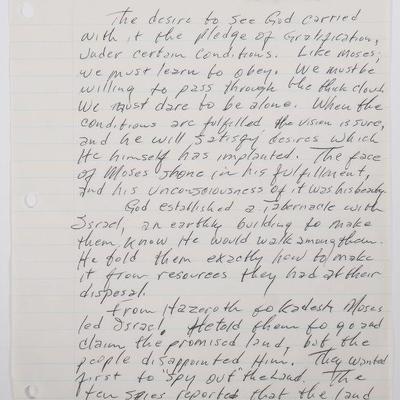 The desire to see God carried
with it the pledge of Gratification,
under certain conditions. Like Moses,
we must learn to obey. We must be
willing to pass through the thick cloud
We must dare to be alone. When the
conditions are fulfilled the vision is sure,
and he will satisfy desires which
He himself has implanted. The face
of Moses shone in his fulfillment,
and his unconsiousness of it was his beauty.
God established a Tabernacle with
Israel, an earthly building to make
them know He would walk among them.
He told them exactly how to make
it from resources they had at their
disposal.
From Hazeroth to Kadesh Moses
led Israel. He told them to go and
claim the promised land, but the
people disappointed Him. They wanted
first to "spy out" the land. The
ten spies reported that the land